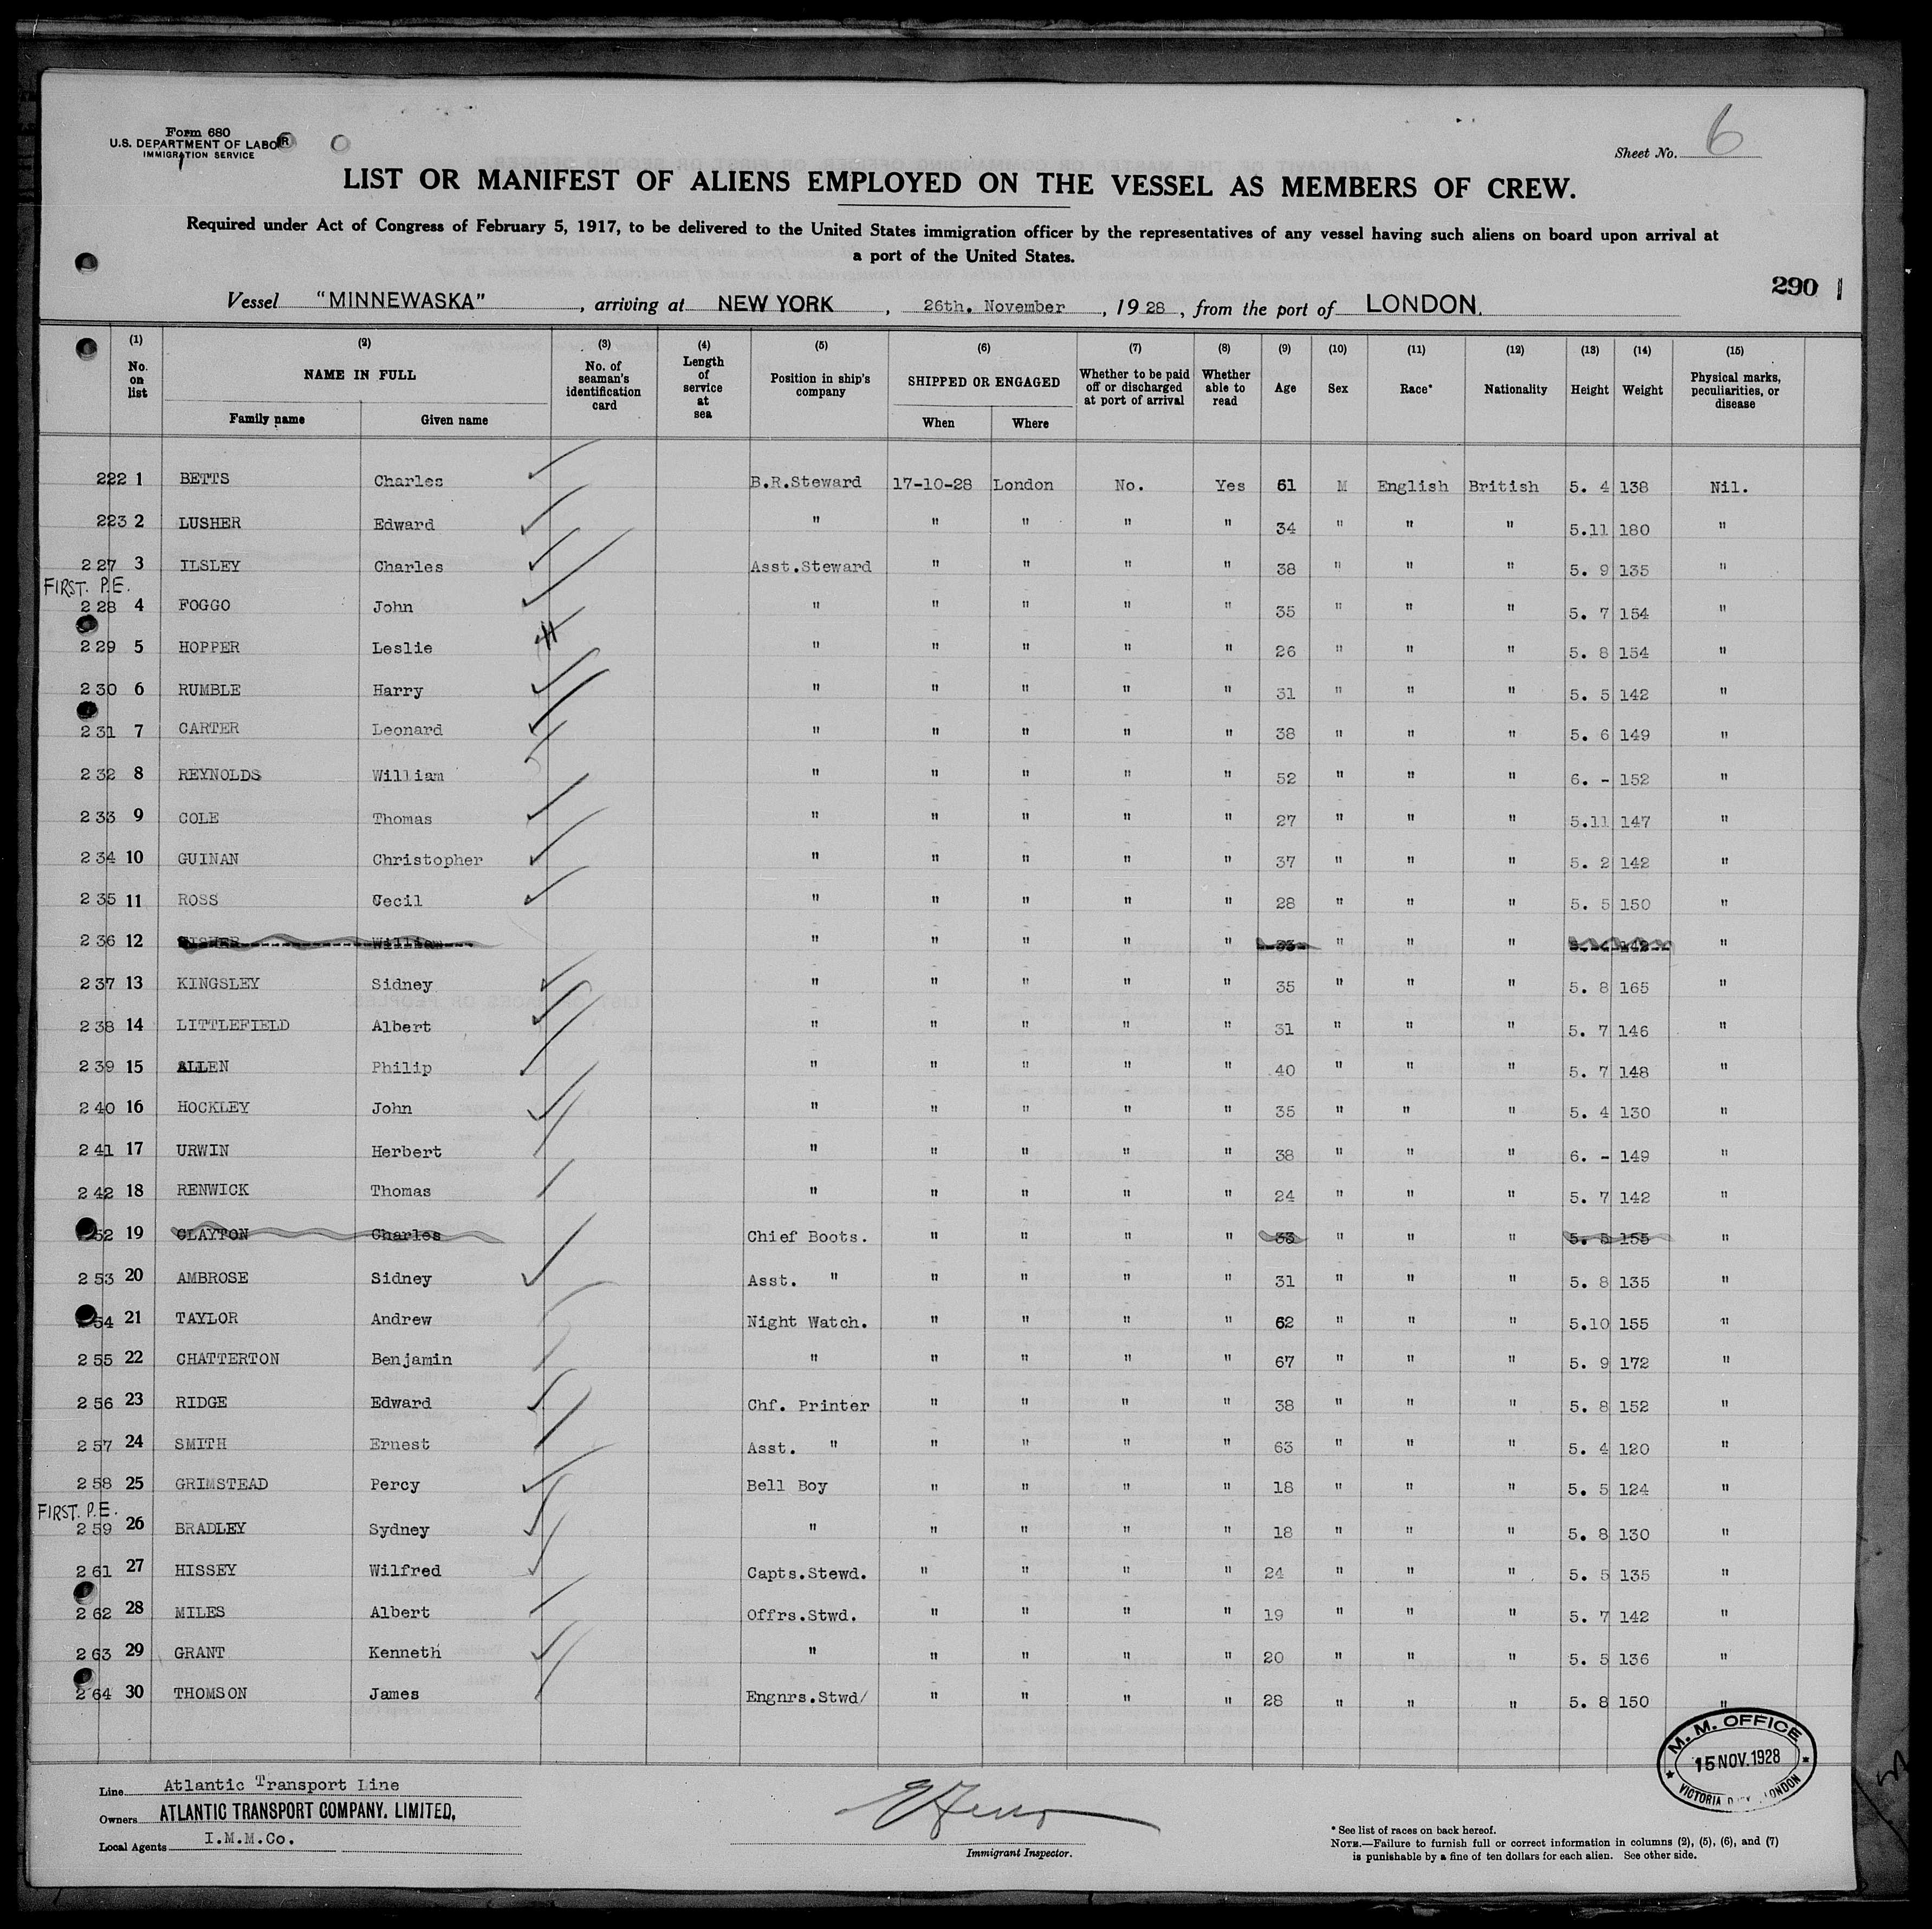 Form 680
U.S. DEPARTMENT OF LABOR
IMMIGRATION SERVICE
Sheet No. 6
LIST OR MANIFEST OF ALIENS EMPLOYED ON THE VESSEL AS MEMBERS OF CREW.
Required under Act of Congress of February 5, 1917, to be delivered to the United States immigration officer by the representatives of any vessel having such aliens on board upon arrival at
a port of the United States.
290
Vessel "MINNEWASKA", arriving at NEW YORK, 26th. November, 1928, from the port of LONDON.
(1) (2) (3) (4) (5) (6) (7) (8) (9) (10) (11) (12) (13) (14) (15)
No. on list NAME IN FULL No. of seaman's identification card Length of service at sea Position in ship's company SHIPPED OR ENGAGED Whether to be paid off or discharged at port of arrival Whether able to read Age Sex Race* Nationality Height Weight Physical marks, peculiarities, or disease
Family name Given name When Where
222 1 BETTS Charles B.R.Steward 17-10-28 London No. Yes 61 M English British 5. 4 138 Nil.
223 2 LUSHER Edward " " " " " 34 " " " 5.11 180 "
227 3 ILSLEY Charles Asst.Steward " " " " 38 " " " 5. 9 135 "
FIRST. P.E.
228 4 FOGGO John " " " " " 35 " " " 5. 7 154 "
229 5 HOPPER Leslie " " " " " 26 " " " 5. 8 154 "
230 6 RUMBLE Harry " " " " " 31 " " " 5. 5 142 "
231 7 CARTER Leonard " " " " " 38 " " " 5. 6 149 "
232 8 REYNOLDS William " " " " " 52 " " " 6. - 152 "
233 9 COLE Thomas " " " " " 27 " " " 5.11 147 "
234 10 GUINAN Christopher " " " " " 37 " " " 5. 2 142 "
235 11 ROSS Cecil " " " " " 28 " " " 5. 5 150 "
236 12 William " " " " " " " " "
237 13 KINGSLEY Sidney " " " " " 35 " " " 5. 8 165 "
238 14 LITTLEFIELD Albert " " " " " 31 " " " 5. 7 146 "
239 15 ALLEN Philip " " " " " 40 " " " 5. 7 148 "
240 16 HOCKLEY John " " " " " 35 " " " 5. 4 130 "
241 17 URWIN Herbert " " " " " 38 " " " 6. - 149 "
242 18 RENWICK Thomas " " " " " 24 " " " 5. 7 142 "
52 19 CLAYTON Charles Chief Boots. " " " " 33 " " " 5. 8 155 "
253 20 AMBROSE Sidney Asst. " " " " " 31 " " " 5. 8 135 "
54 21 TAYLOR Andrew Night Watch. " " " " 62 " " " 5.10 155 "
255 22 CHATTERTON Benjamin " " " " " 67 " " " 5. 9 172 "
256 23 RIDGE Edward Chf. Printer " " " " 38 " " " 5. 8 152 "
257 24 SMITH Ernest Asst. " " " " " 63 " " " 5. 4 120 "
258 25 GRIMSTEAD Percy Bell Boy " " " " 18 " " " 5. 5 124 "
FIRST. P.E.
259 26 BRADLEY Sydney " " " " " 18 " " " 5. 8 130 "
261 27 HISSEY Wilfred Capts.Stewd. " " " " 24 " " " 5. 5 135 "
262 28 MILES Albert Offrs.Stwd. " " " " 19 " " " 5. 7 142 "
263 29 GRANT Kenneth " " " " " 20 " " " 5. 5 136 "
264 30 THOMSON James Engnrs.Stwd/ " " " " 28 " " " 5. 8 150 "
M. M. OFFICE
15 NOV. 1928
VICTORIA LONDON
Line Atlantic Transport Line
Owners ATLANTIC TRANSPORT COMPANY, LIMITED,
Local Agents I.M.M.Co.
Immigrant Inspector.
* See list of races on back hereof.
NOTE.—Failure to furnish full or correct information in columns (2), (5), (6), and (7)
is punishable by a fine of ten dollars for each alien. See other side.